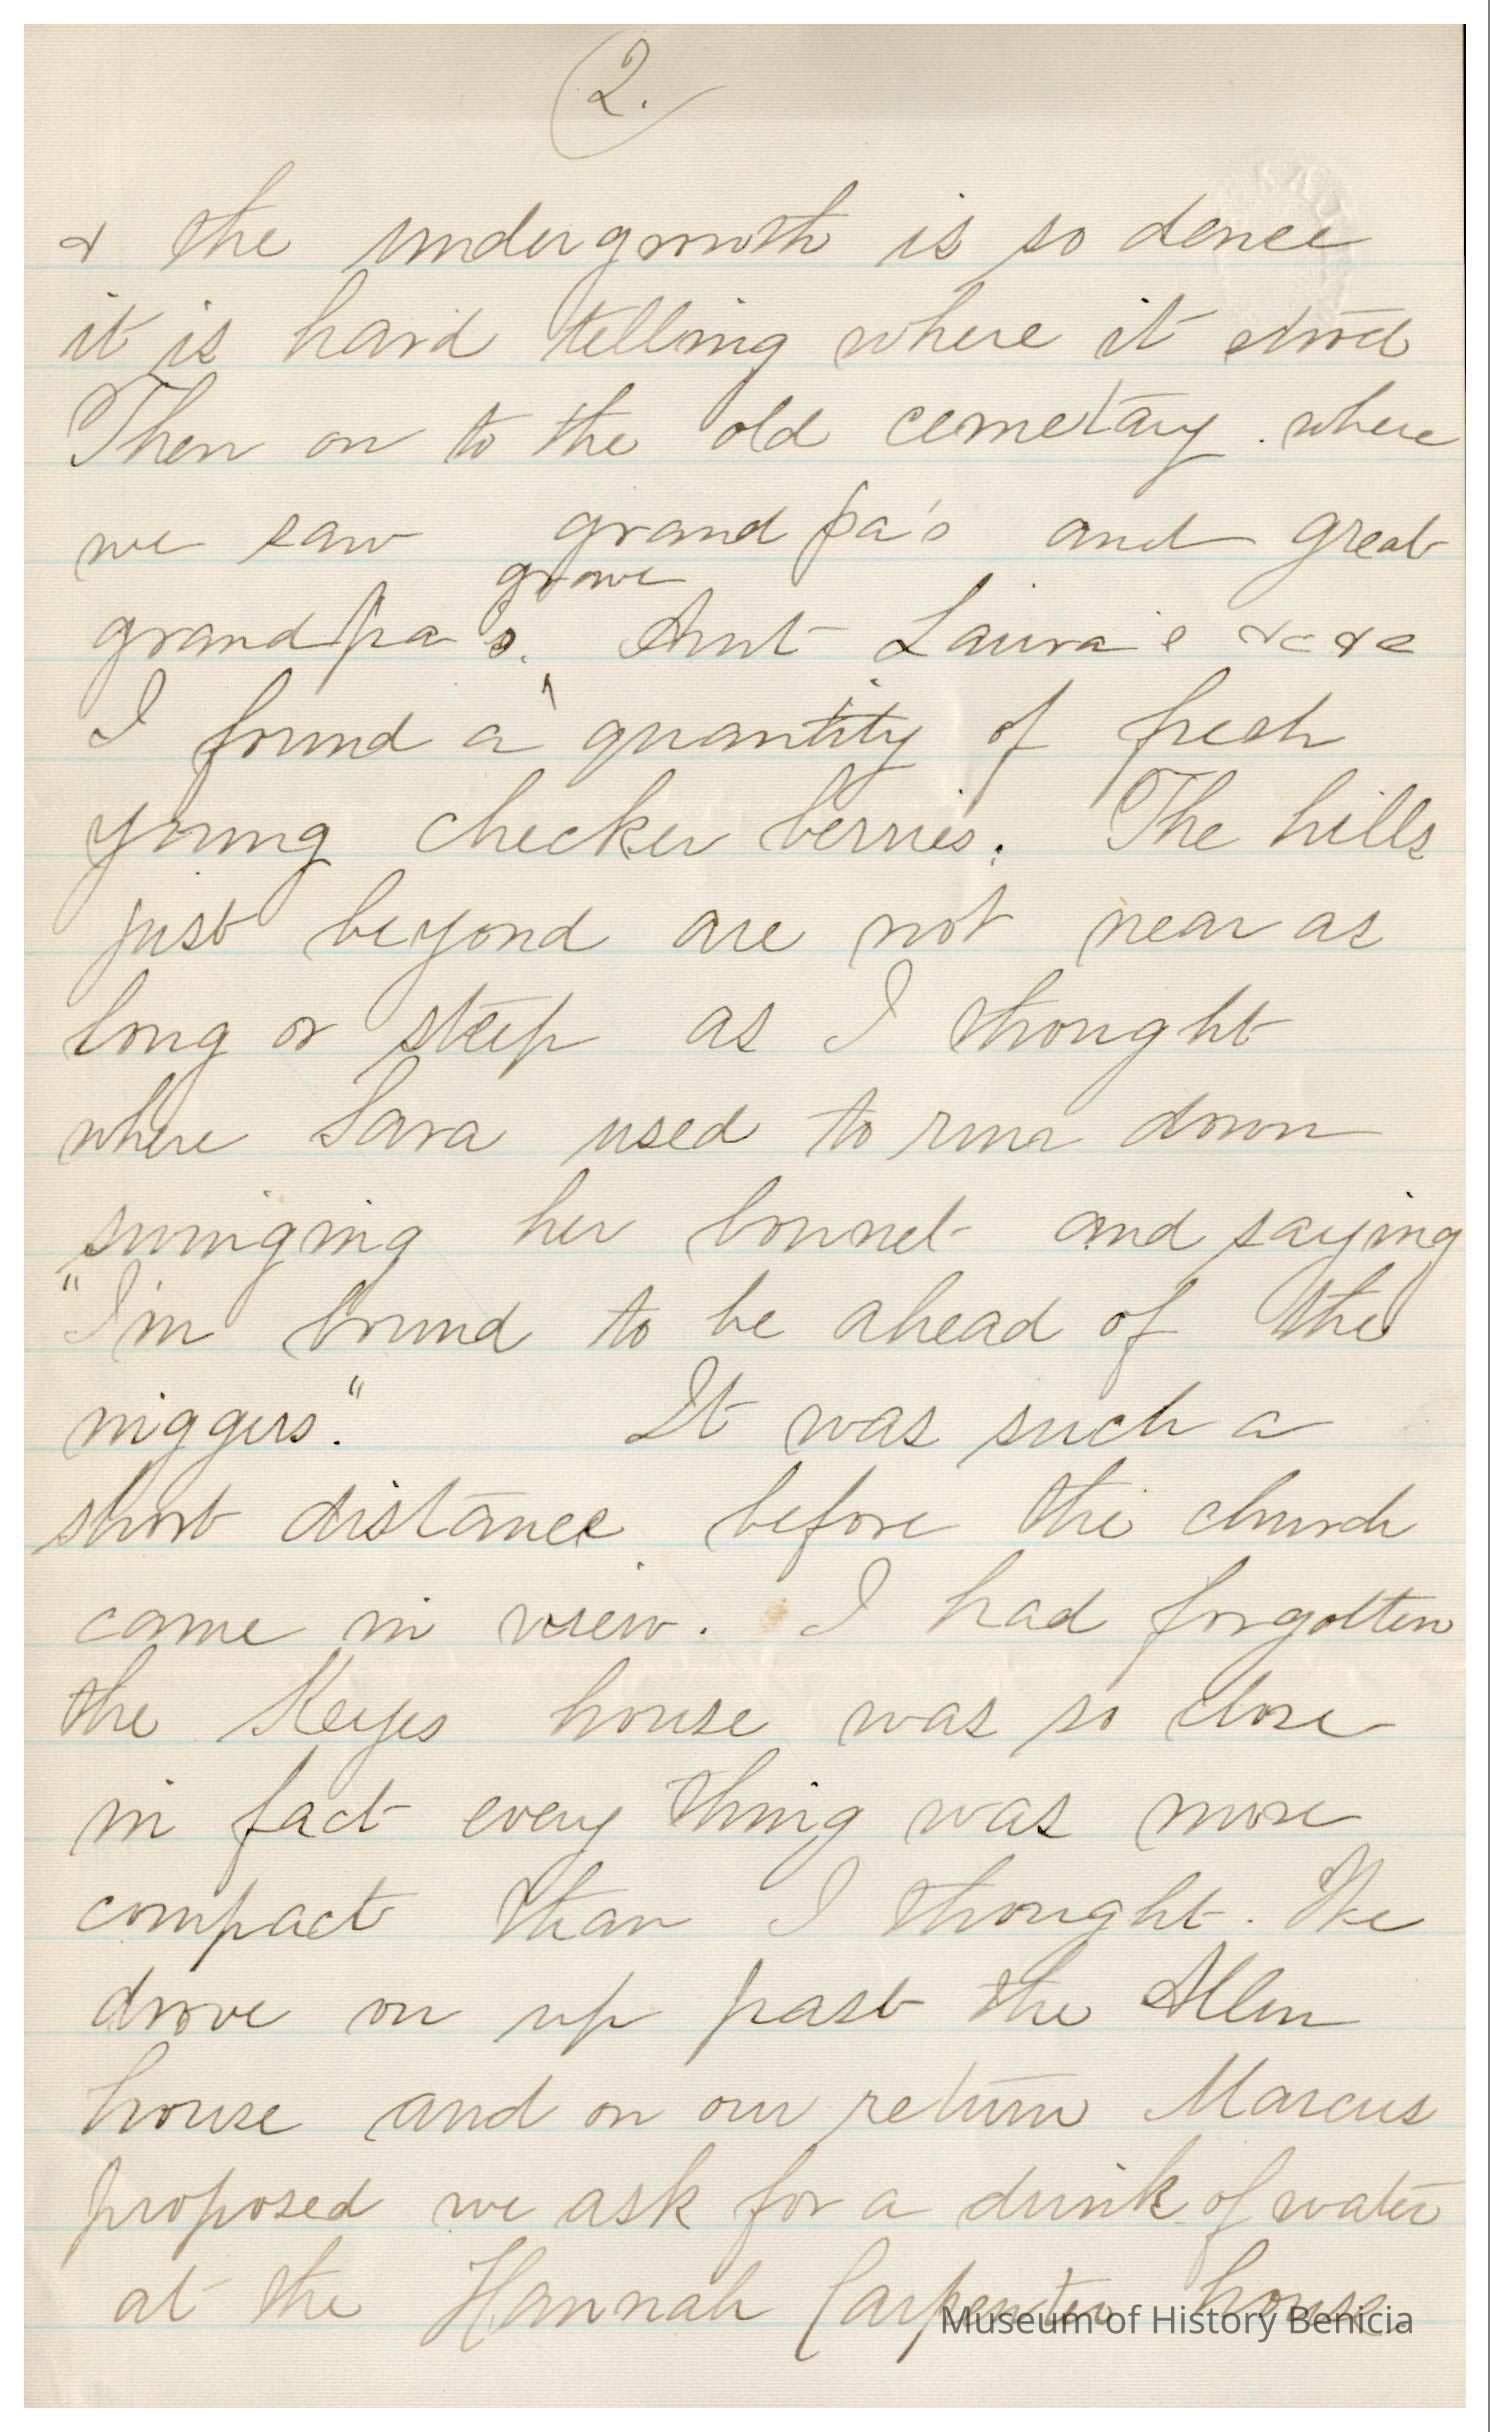 2.
& the undergrowth is so dence
it is hard telling where it stood
Then on to the old cemetary. where
we saw grand pa's and great
grave
grandpa's. Aunt Laura's &c &c
I found a quantity of fresh
young checker berries. The hills
just beyond are not near as
long or steep as I thought
where Sara used to run down
swinging her bonnet and saying
"I'm bound to be ahead of the
niggers." It was such a
short distance before the church
came in view. I had forgotten
the Keyes house was so close
in fact every thing was more
compact than I thought. We
drove on up past the Allen
house and on our return Marcus
proposed we ask for a drink of water
at the Hannah Carpenter house.
Museum of History Benicia